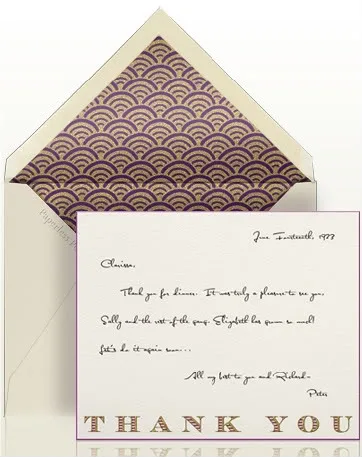 Paperless P
June Fourteenth, 1923
Clarissa,
Thank you for dinner. It was truly a pleasure to see you,
Sally and the rest of the gang. Elizabeth has grown so much!
Let's do it again soon...
All my best to you and Richard-
Peter
THANK YOU